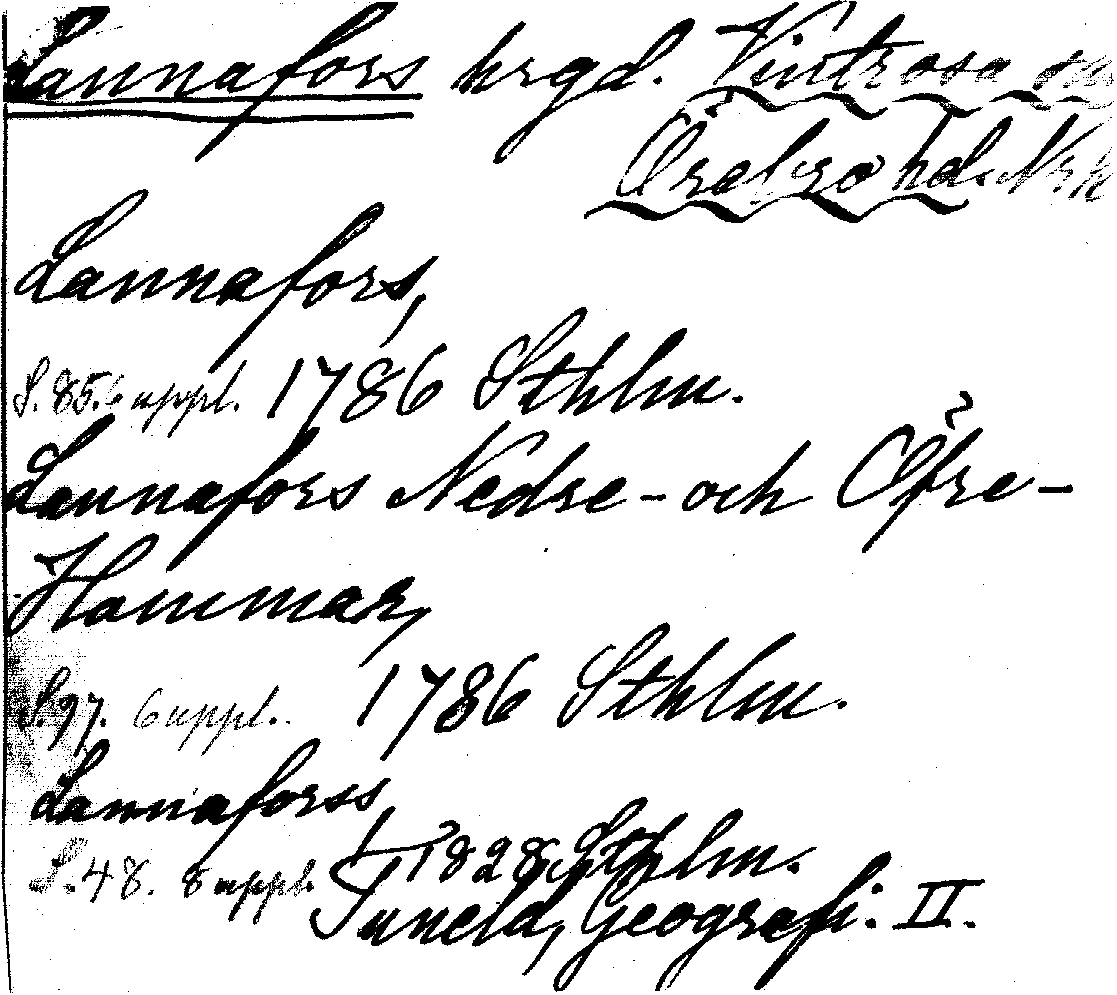 Lannafors hrgd. Vintrosa sn
Örebro hd. Nrk
Lannafors,
S. 85. 6 uppl. 1786 Sthlm.
Lannafors Nedre- och Öfre-
Hammar,
S. 97. 6 uppl. 1786 Sthlm.
Lannaforss,
S. 48. 8 uppl. 1828 Sthlm.
Tuneld, Geografi. II.